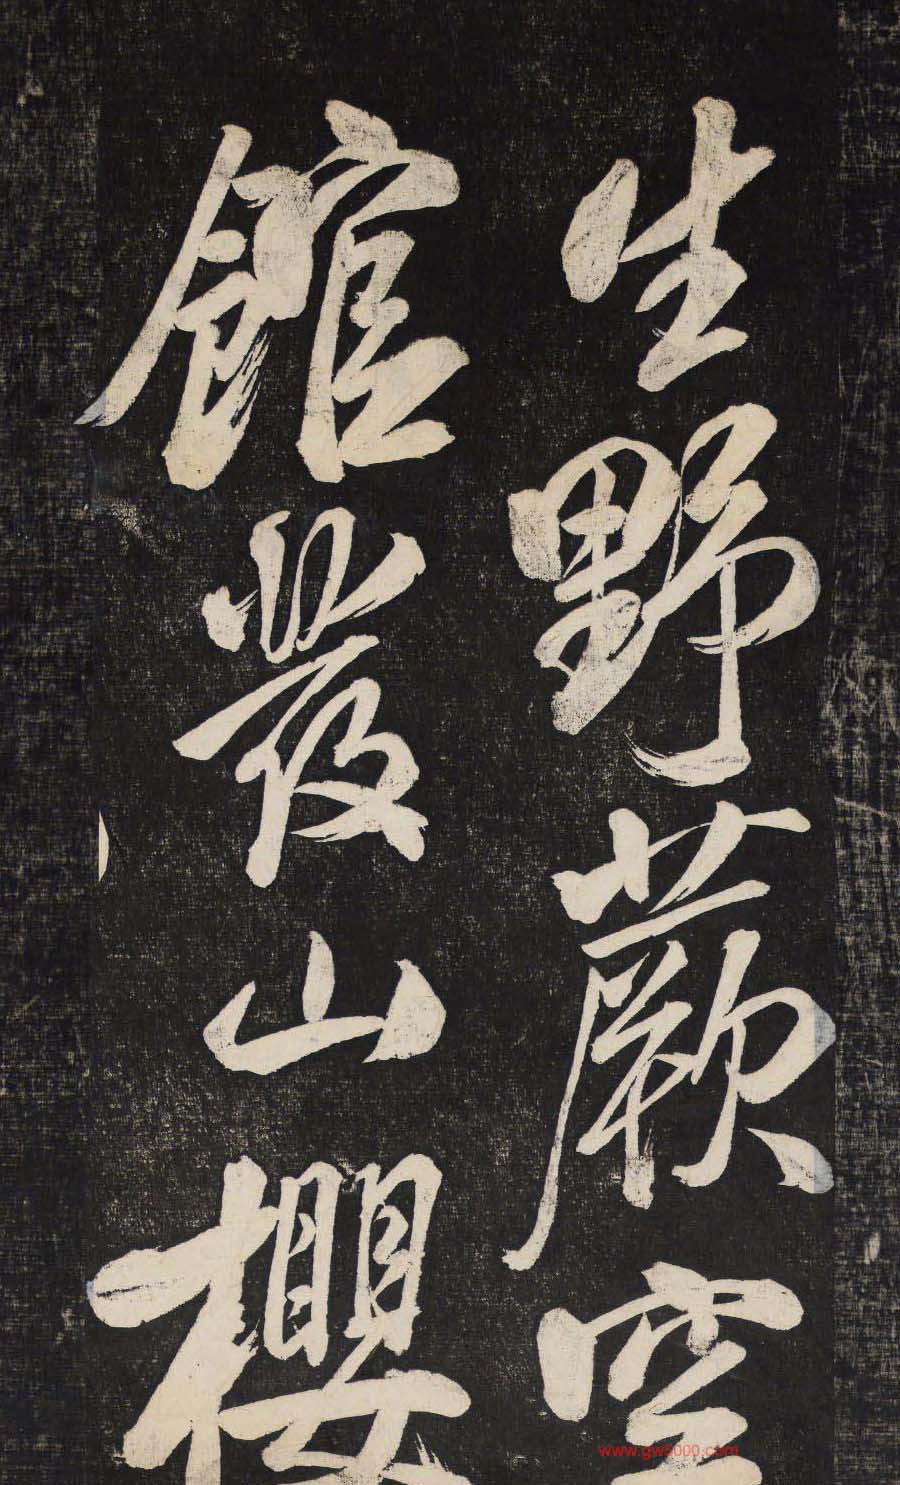 生野蕨空
館發山櫻
www.gw8000.com